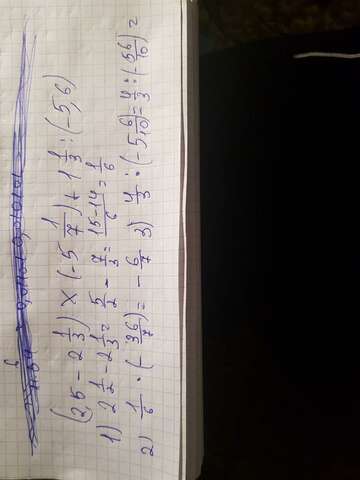 (2,5 - 2 1/3) × (-5 1/7) + 1 1/3 : (-5,6)
1) 2 1/2 - 2 1/3 = 5/2 - 7/3 = 15-14/6 = 1/6
2) 1/6 · (- 36/7) = - 6/7 3) 4/3 : (-5 6/10) = 4/3 : (-5 6/10) =